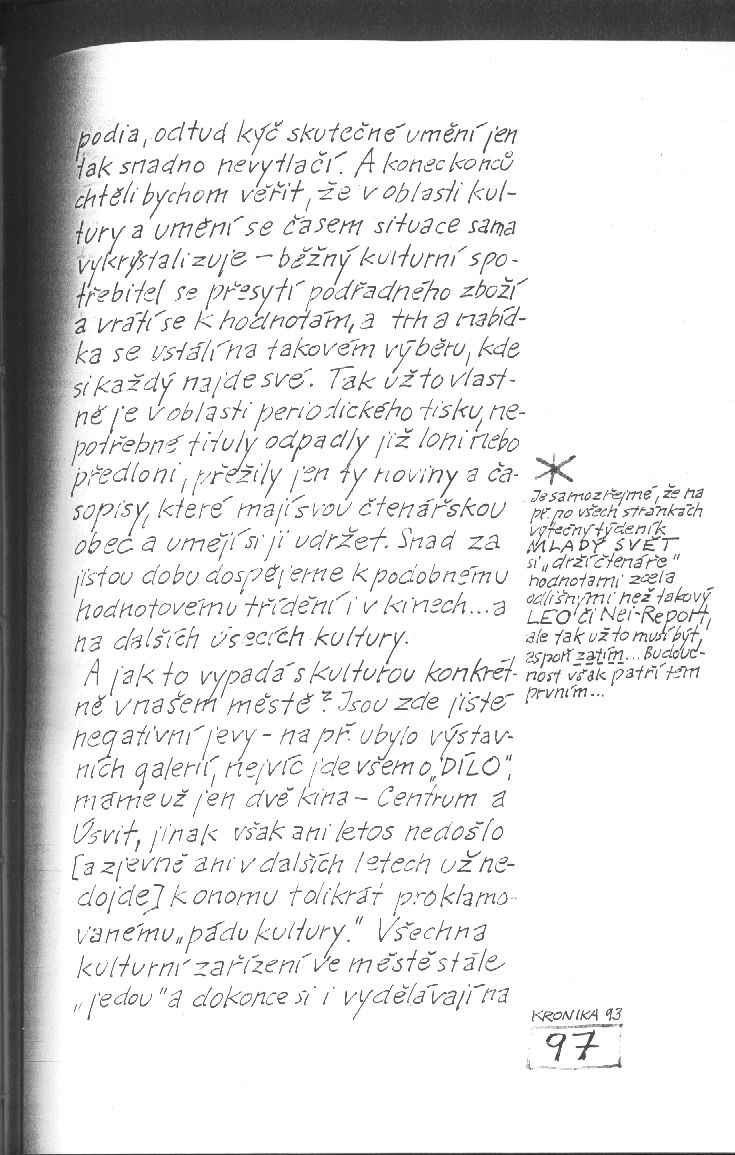 podia, odtud kýč skutečné umění jen
tak snadno nevytlačí. A koneckonců
chtěli bychom věřit, že v oblasti kul-
tury a umění se časem situace sama
vykrystalizuje – běžný kulturní spo-
třebitel se přesytí podřadného zboží
a vrátí se k hodnotám, a trh a nabíd-
ka se ustálí na takovém výběru, kde
si každý najde své. Tak už to vlast-
ně je v oblasti periodického tisku, ne-
potřebné tituly odpadly již loni nebo
předloni, přežily jen ty noviny a ča-
sopisy, které mají svou čtenářskou
obec a umějí si ji udržet. Snad za
jistou dobu dospějeme k podobnému
hodnotovému třídění i v kinech... a
na dalších úsecích kultury.
A jak to vypadá s kulturou konkrét-
ně v našem městě? Jsou zde jisté
negativní jevy – na př. ubylo výstav-
ních galerií, nejvíc jde všem o „DÍLO",
máme už jen dvě kina – Centrum a
Úsvit, jinak však ani letos nedošlo
[a zjevně ani v dalších letech už ne-
dojde] k onomu tolikrát proklamo-
vanému „pádu kultury." Všechna
kulturní zařízení ve městě stále
„jedou" a dokonce si i vydělávají na
*
Je samozřejmé, že na
př. po všech stránkách
výtečný týdeník
MLADÝ SVĚT
si „drží čtenáře"
hodnotami zcela
odlišnými než takový
LEO či Nei-Report,
ale tak už to musí být,
aspoň zatím... Budouc-
nost však patří těm
prvním...
KRONIKA 93
97